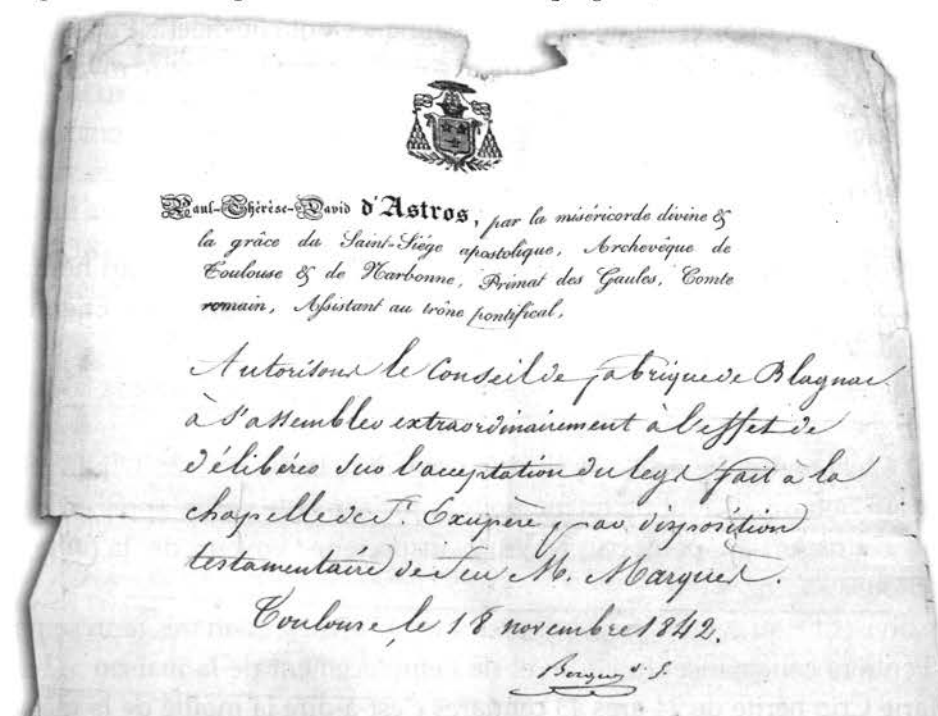 Paul-Thérèse-David d'Astros, par la miséricorde divine &
la grâce du Saint-Siége apostolique, Archevêque de
Toulouse & de Narbonne, Primat des Gaules, Comte
romain, Assistant au trône pontifical,
Autorisons le Conseil de fabrique de Blagnac
à s'assembler extraordinairement à l'effet de
délibérer sur l'acceptation du legs fait à la
chapelle de St. Exupère par disposition
testamentaire de feu M. Marques.
Toulouse le 18 novembre 1842.